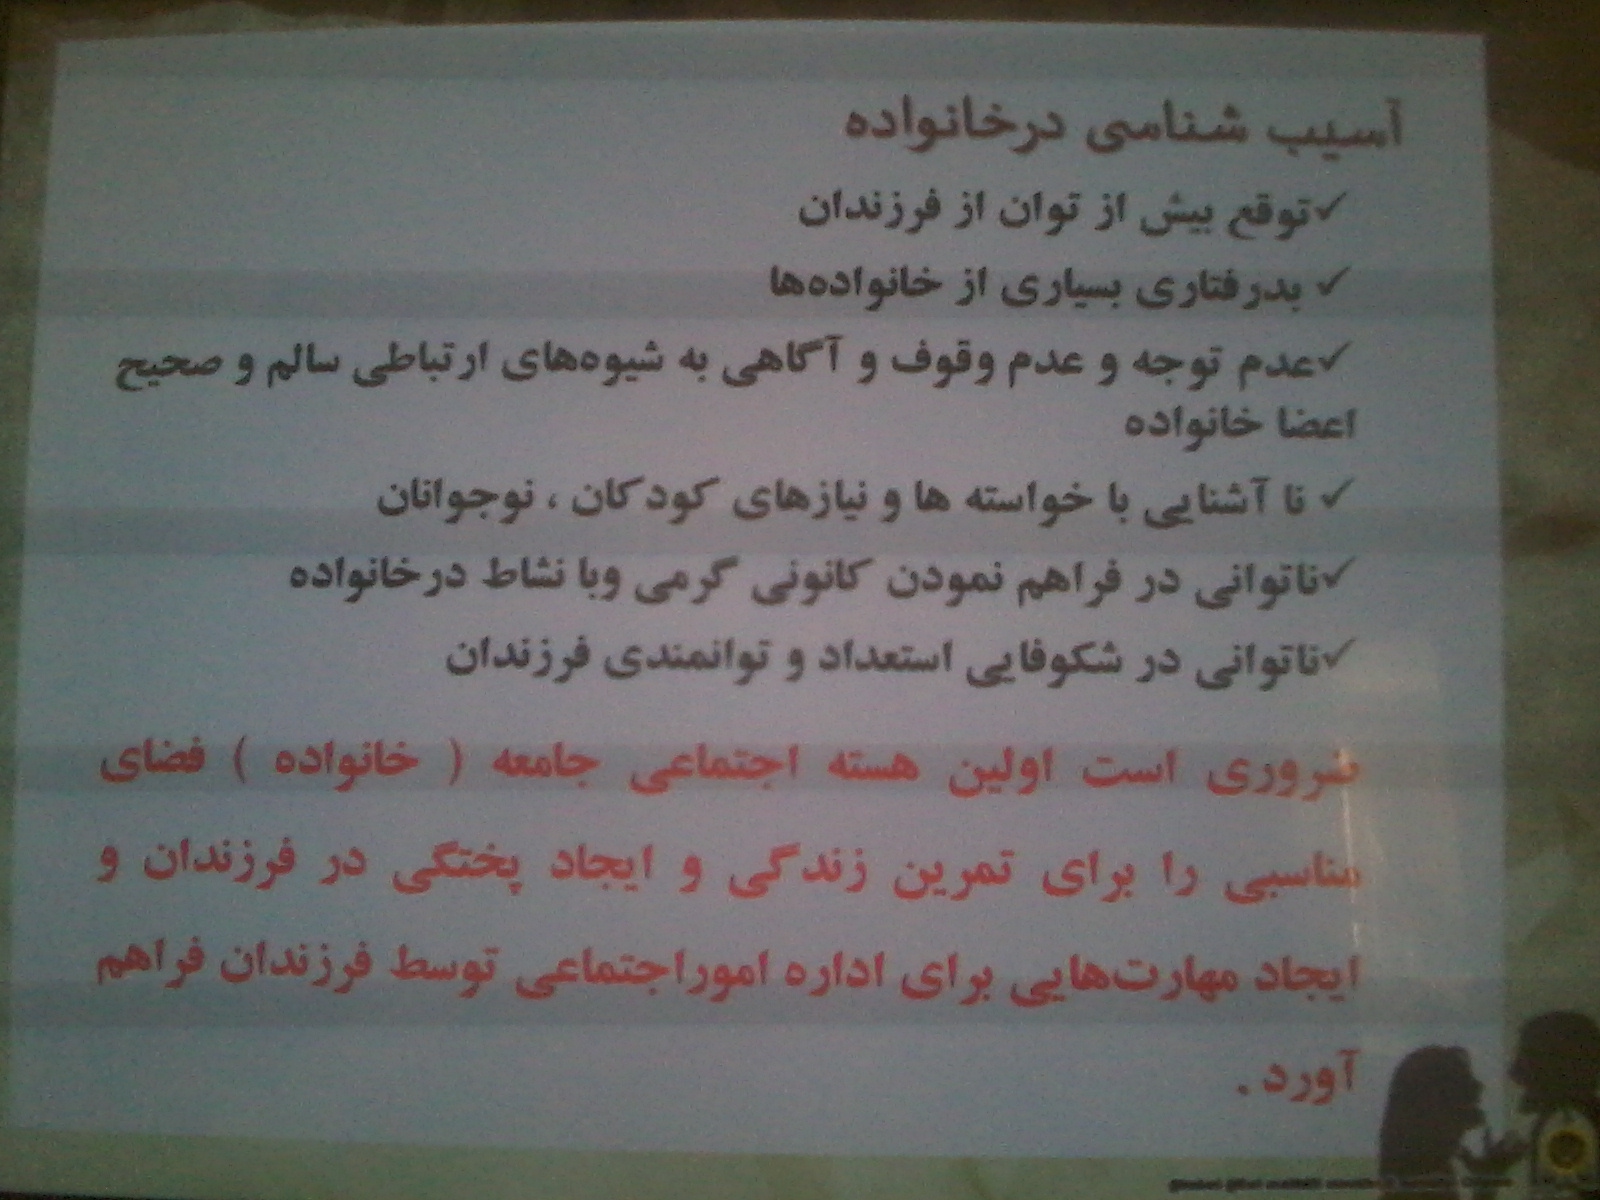 آسیب شناسی درخانواده
✓توقع بیش از توان از فرزندان
✓ بدرفتاری بسیاری از خانواده‌ها
✓عدم توجه و عدم وقوف و آگاهی به شیوه‌های ارتباطی سالم و صحیح
اعضا خانواده
✓ نا آشنایی با خواسته ها و نیازهای کودکان ، نوجوانان
✓ناتوانی در فراهم نمودن کانونی گرمی وبا نشاط درخانواده
✓ناتوانی در شکوفایی استعداد و توانمندی فرزندان
ضروری است اولین هسته اجتماعی جامعه ( خانواده ) فضای
مناسبی را برای تمرین زندگی و ایجاد پختگی در فرزندان و
ایجاد مهارت‌هایی برای اداره اموراجتماعی توسط فرزندان فراهم
آورد .